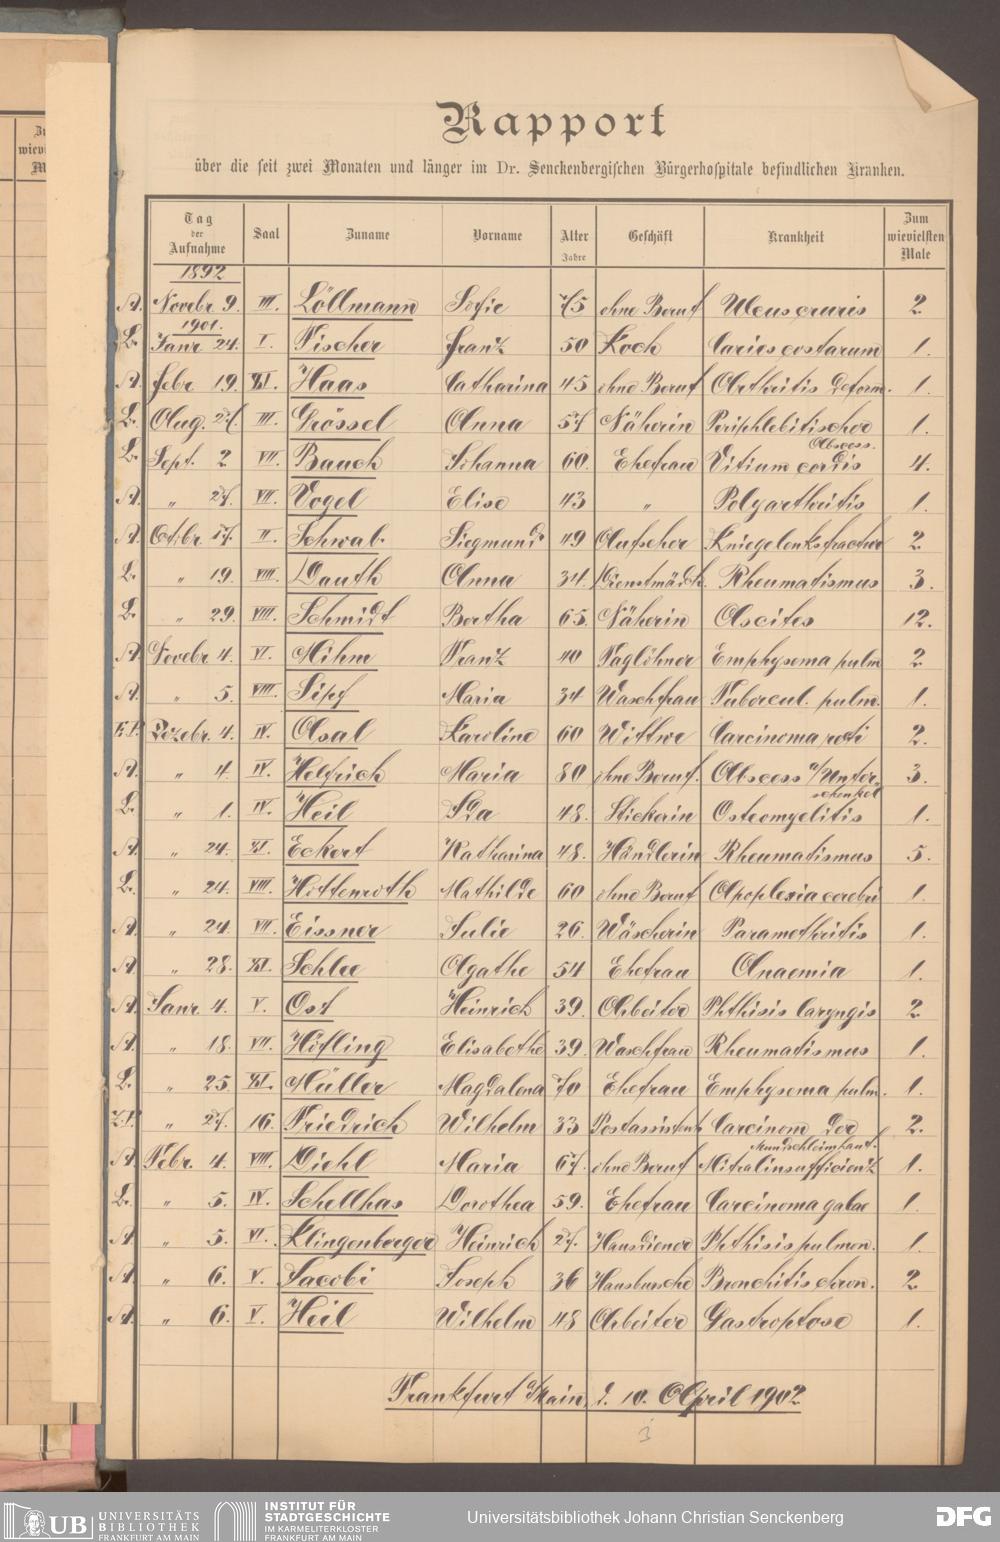 Rapport
über die seit zwei Monaten und länger im Dr. Senckenbergischen Bürgerhospitale befindlichen Kranken.
Tag der Aufnahme Saal Zuname Vorname Alter Jahre Geschäft Krankheit Zum wievielsten Male
1892
A. Novebr. 9. III. Löllmann Sofie 75 ohne Beruf Ulcus cruris 2
1901.
L. Janr. 24. I. Fischer Franz 50 Koch Caries costarum 1.
A. Febr. 19. XI. Haas Catharina 45 ohne Beruf Arthritis deform. 1.
L. Aug. 27. III. Grössel Anna 57 Näherin Periphlebitischer 1.
Abscess.
L. Sept. 2 VII. Bauch Johanna 60. Ehefrau Vitium cordis 4.
A. " 27. VII. Vogel Elise 43 " Polyarthritis 1.
A. Octbr. 17. II. Schwab. Siegmund 49 Aufseher Kniegelenksfractur 2
L. " 19. VIII. Dauth Anna 34. Dienstmädch. Rheumatismus 3.
L. " 29. VIII. Schmidt Bertha 65. Näherin Ascites 12.
A. Novebr. 4. VI. Mihm Franz 40 Taglöhner Emphysema pulm 2
A. " 5. VIII. Sipf Maria 34 Waschfrau Tubercul. pulm. 1.
Dezebr. 4. IV. Asal Karoline 60 Wittwe Carcinoma recti 2.
A. " 4. IV. Helfrich Maria 80 ohne Beruf. Abscess a/Unter- 3.
schenkel
L. " 1. IV. Heil Ida 48. Stickerin Osteomyelitis 1.
A. " 24. XI. Eckert Katharina 48. Händlerin Rheumatismus 5.
L. " 24. VIII. Hottenroth Mathilde 60 ohne Beruf Apoplexia cerebri 1.
A. " 24. VII. Eissner Julie 26. Wäscherin Parametritis 1.
A. " 28. XI. Schlee Agathe 54 Ehefrau Anaemia 1.
A. Janr. 4. V. Ost Heinrich 39. Arbeiter Phthisis laryngis 2
A. " 18. VII. Höfling Elisabethe 39. Waschfrau Rheumatismus 1.
L. " 25. XI. Müller Magdalena 70 Ehefrau Emphysema pulm. 1.
" 27. 16. Friedrich Wilhelm 33 Postassistent Carcinom der 2.
Mundschleimhaut.
A. Febr. 4. VIII. Diehl Maria 67. ohne Beruf Mitralinsufficienz 1.
L. " 5. IV. Schellhas Dorothea 59. Ehefrau Carcinoma galae 1.
A. " 5. VI. Klingenberger Heinrich 27. Hausdiener Phthisis pulmon. 1.
A. " 6. V. Jacobi Joseph 36 Hausbursche Bronchitis chron. 2
A. " 6. V. Heil Wilhelm 48 Arbeiter Gastroptose 1.
Frankfurt a/Main, d. 10. April 1902
3
UB UNIVERSITÄTS BIBLIOTHEK FRANKFURT AM MAIN
INSTITUT FÜR STADTGESCHICHTE IM KARMELITERKLOSTER FRANKFURT AM MAIN
Universitätsbibliothek Johann Christian Senckenberg
DFG